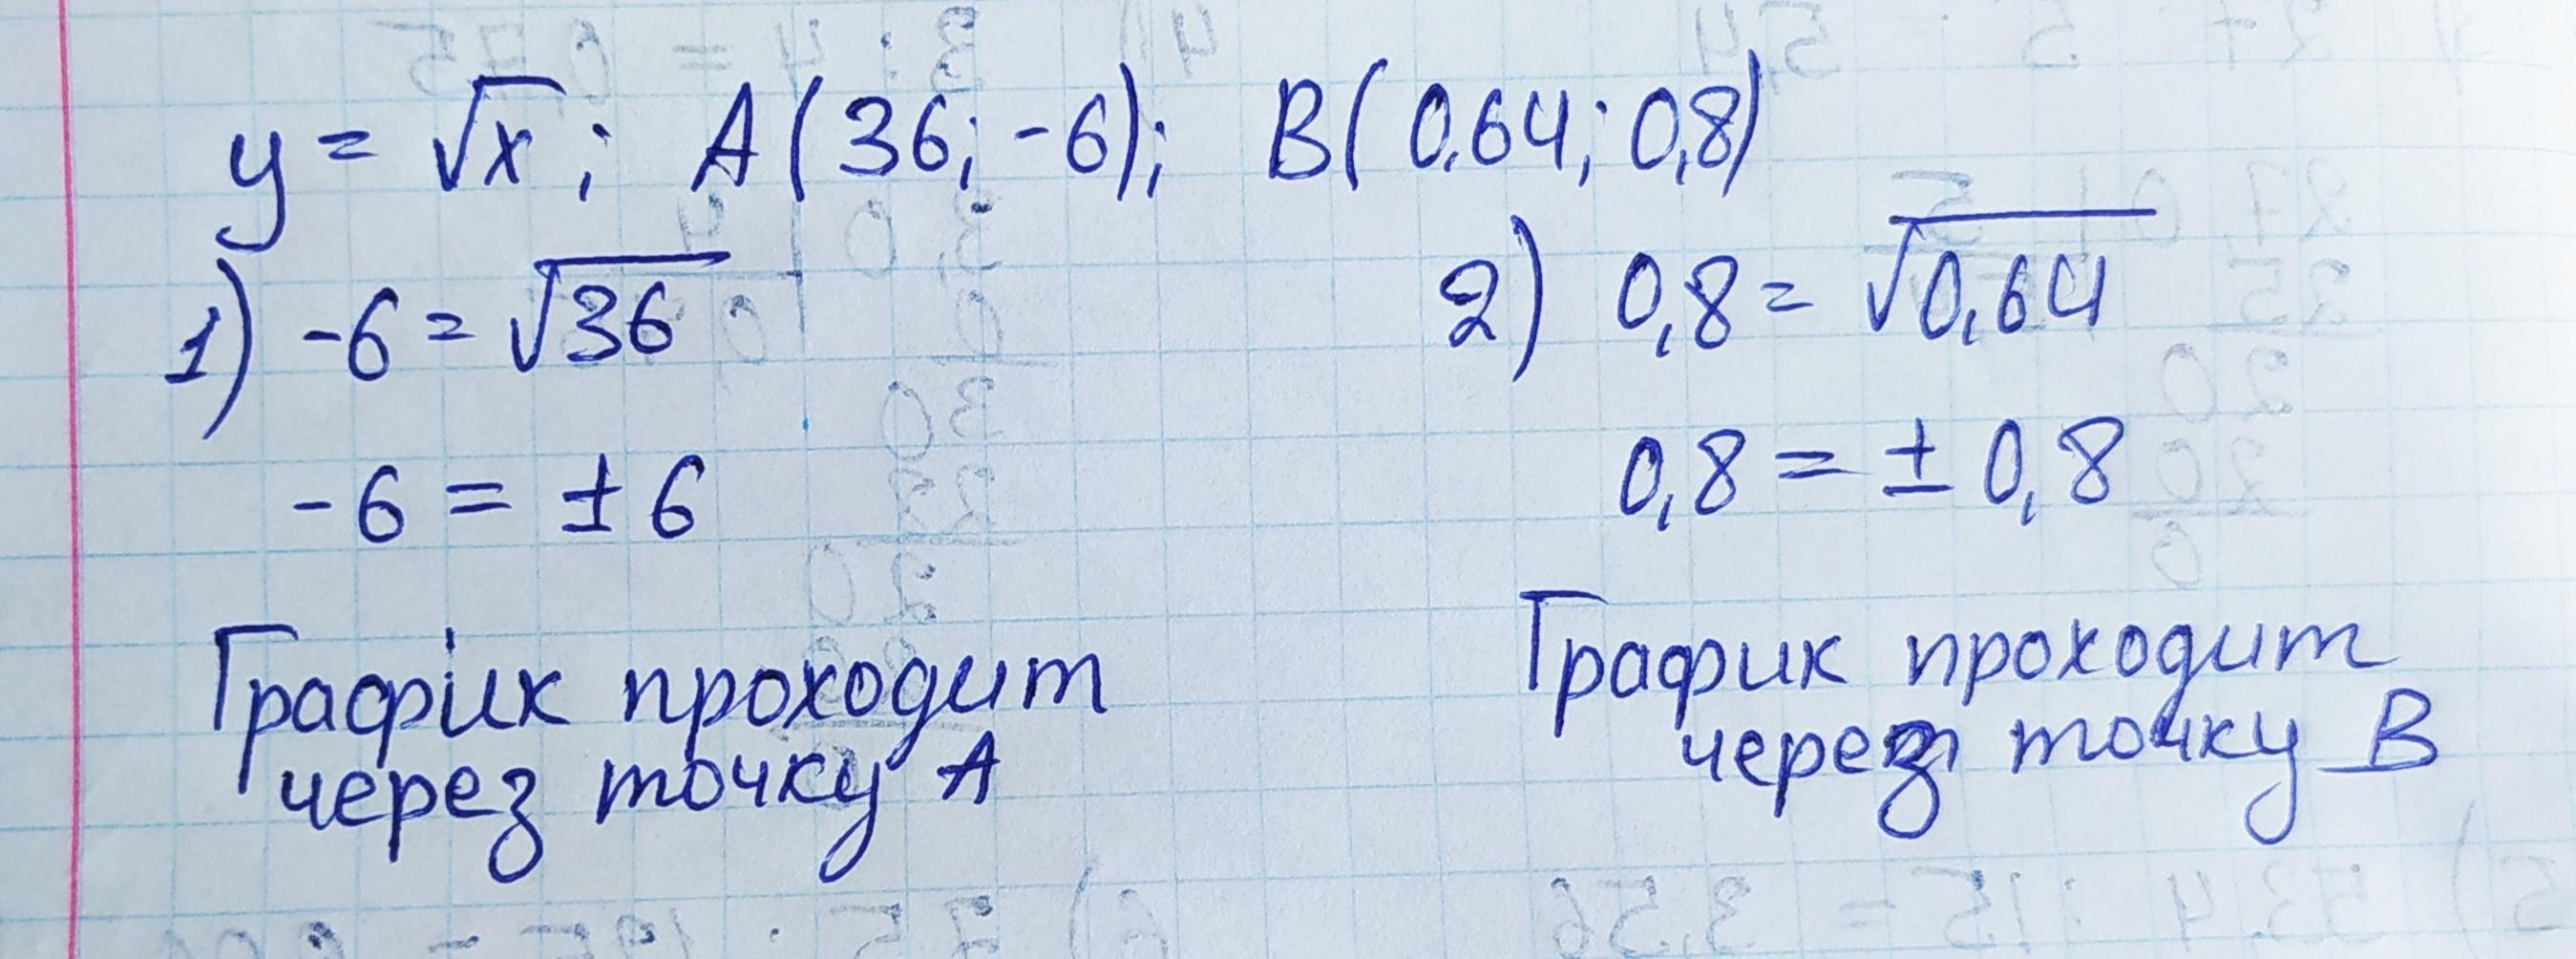 y = √x; A(36; -6); B(0,64; 0,8)
1) -6 = √36
-6 = ±6
График проходит
через точку A
2) 0,8 = √0,64
0,8 = ±0,8
График проходит
через точку B